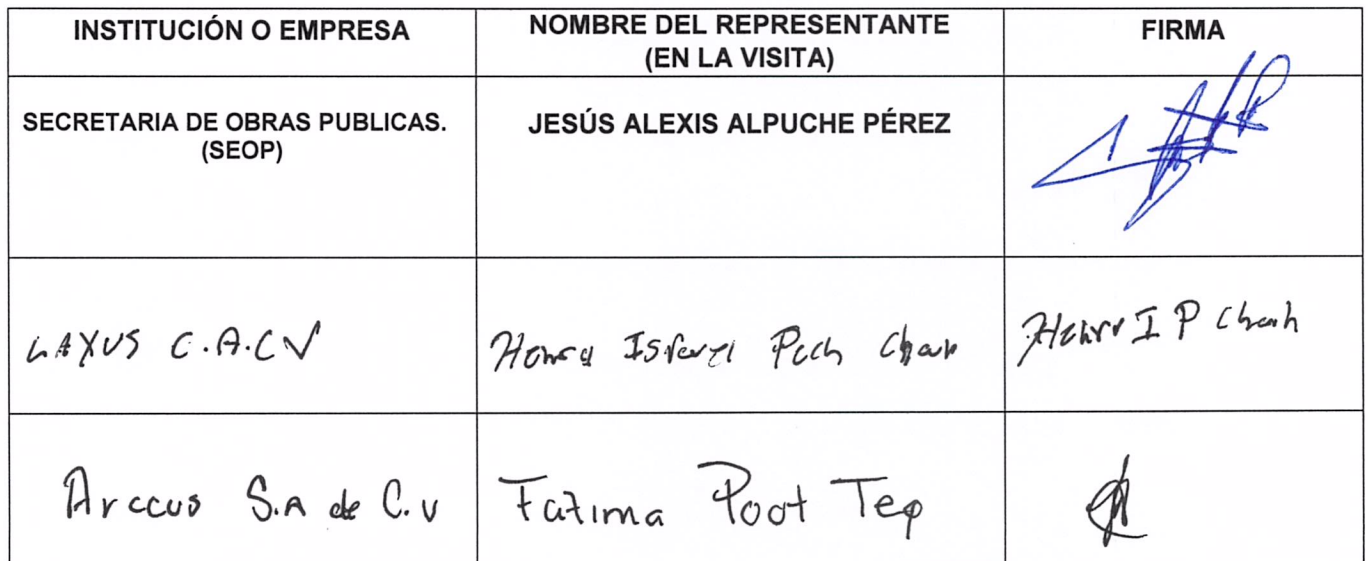 INSTITUCIÓN O EMPRESA
NOMBRE DEL REPRESENTANTE
(EN LA VISITA)
FIRMA
SECRETARIA DE OBRAS PUBLICAS.
(SEOP)
JESÚS ALEXIS ALPUCHE PÉREZ
LAXUS C.A.CV
Israel Pech Chan
I P
Arccus S.A de C.V
Fatima Poot Tep